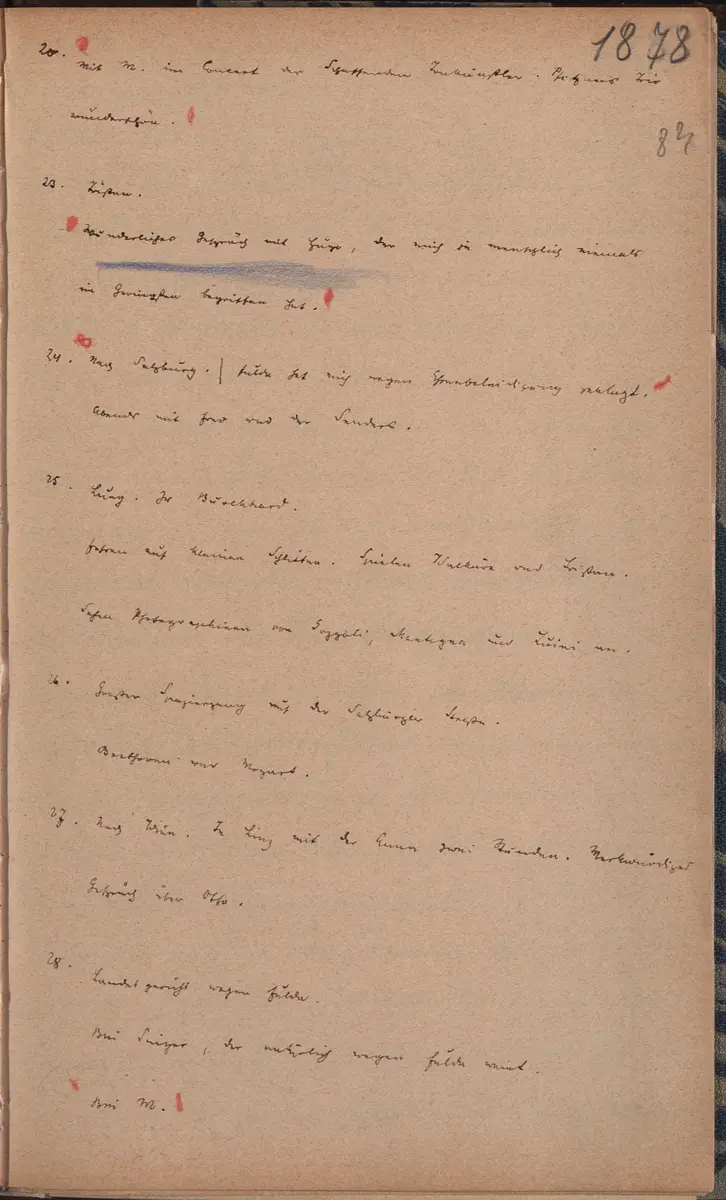 1878
84
20.
Mit M. im Concert der Schaffenden Tonkünstler. Pfitzners Trio
wunderschön.
23. Tristan.
Wunderliches Gespräch mit Hugo, der mich ja menschlich niemals
im Geringsten begriffen hat.
24. Nach Salzburg. | Fulda hat mich wegen Ehrenbeleidigung geklagt.
Abends mit Fred und der Sanders.
25. Lueg. Zu Burckhard.
Fahren auf kleinen Schlitten. Spielen Walküre und Tristan.
Sehen Photographieen von Gozzoli, Mantegna und Luini an.
26. Großer Spaziergang auf der Salzburger Straße.
Beethoven und Mozart.
27. Nach Wien. In Linz mit der Anna zwei Stunden. Merkwürdiges
Gespräch über Otto.
28.
Landesgericht wegen Fulda.
Bei Singer, der natürlich wegen Fulda weint.
Bei M.